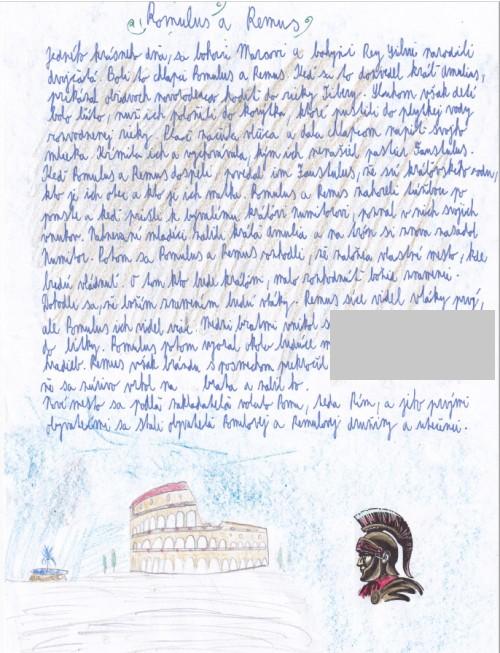 Romulus a Remus
Jedného krásneho dňa, sa bohovi Marsovi a bohyni Rey Silvii narodili
dvojičatá. Boli to chlapci Romulus a Remus. Keď sa to dozvedel kráľ Amulius,
prikázal obidvoch novorodencov hodiť do rieky Tibery. Sluhom však detí
bolo ľúto, tak ich položili do korýtka, ktoré pustili do plytkej vody
rozvodnenej rieky. Plač začula vlčica a dala chlapcom napiť svojho
mlieka. Kŕmila ich a vychovávala, kým ich nenašiel pastier Faustulus.
Keď Romulus a Remus dospeli povedal im Faustulus, že sú kráľovského rodu,
kto je ich otec a kto je ich matka. Romulus a Remus zatúžili po
pomste a keď prišli k bývalému kráľovi Numitorovi, poznal v nich svojich
vnukov. Nahnevaní mladíci zabili kráľa Amulia a na trón si znovu zasadol
Numitor. Potom sa Romulus a Remus rozhodli, že založia vlastné mesto, kde
budú vládnuť. O tom kto bude kráľom, malo rozhodnúť božie znamenie.
Dohodli sa, že božím znamením budú vtáky. Remus síce videl vtáky prvý,
ale Romulus ich videl viac. Medzi bratmi vznikol s
do bitky. Romulus potom vyoral okolo budúce m
hradieb. Remus však brázdu s posmechom prekročil
že sa zúrivo vrhol na brata a zabil ho.
Nové mesto sa podľa zakladateľa volalo Roma, teda Rím, a jeho prvými
obyvateľmi sa stali obyvatelia Romulovej a Remulovej družiny a utečenci.